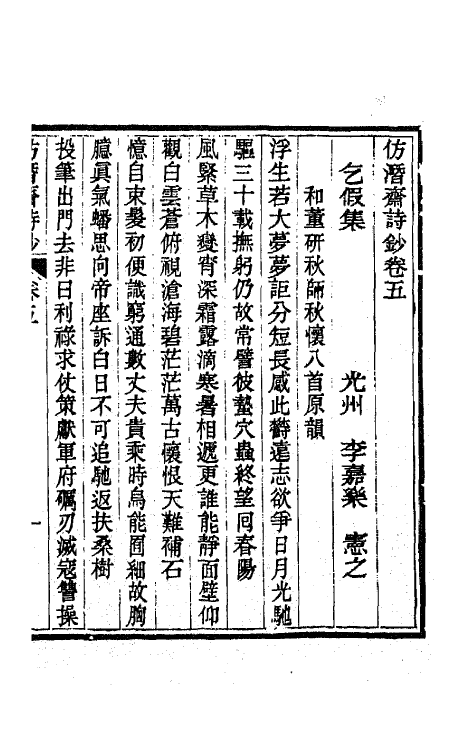 仿潛齋詩鈔卷五
乞假集　光州　李嘉樂　憲之
和董研秋師秋懷八首原韻
浮生若大夢夢詎分短長感此鬱遠志欲爭日月光馳
驅三十載撫躬仍故常譬彼蟄穴蟲終望囘春陽
風緊草木變宵深霜露滴寒暑相遞更誰能靜面壁仰
觀白雲蒼俯視滄海碧茫茫萬古懷恨天難補石
憶自束髮初便識窮通數丈夫貴乘時烏能囿細故胸
臆眞氣蟠思向帝座訴白日不可追馳返扶桑樹
投筆出門去非日利祿求仗策獻軍府礪刃滅寇讐操
仿潛齋詩鈔　卷五　一